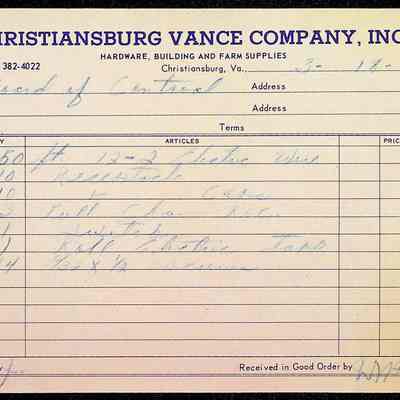 HRISTIANSBURG VANCE COMPANY, INC
HARDWARE, BUILDING AND FARM SUPPLIES
382-4022
Christiansburg, Va., 3- 18-
oard of Control Address
Address
Terms
Y ARTICLES PRIC
50 ft. 12-2 Electric Wire
0 Receptacle
Pull Chain
Switch
1 Roll Electric Tape
4 x 1/2
Received in Good Order by